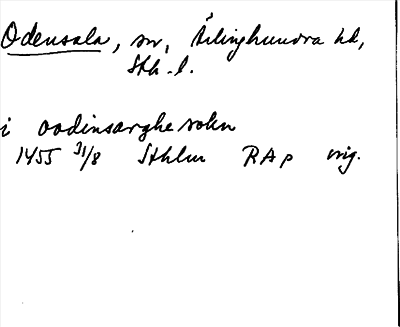 Odensala, sn, Ärlinghundra hd,
Sth. l.
i oodinsarghe sokn
1455 31/8 Sthlm RAp orig.